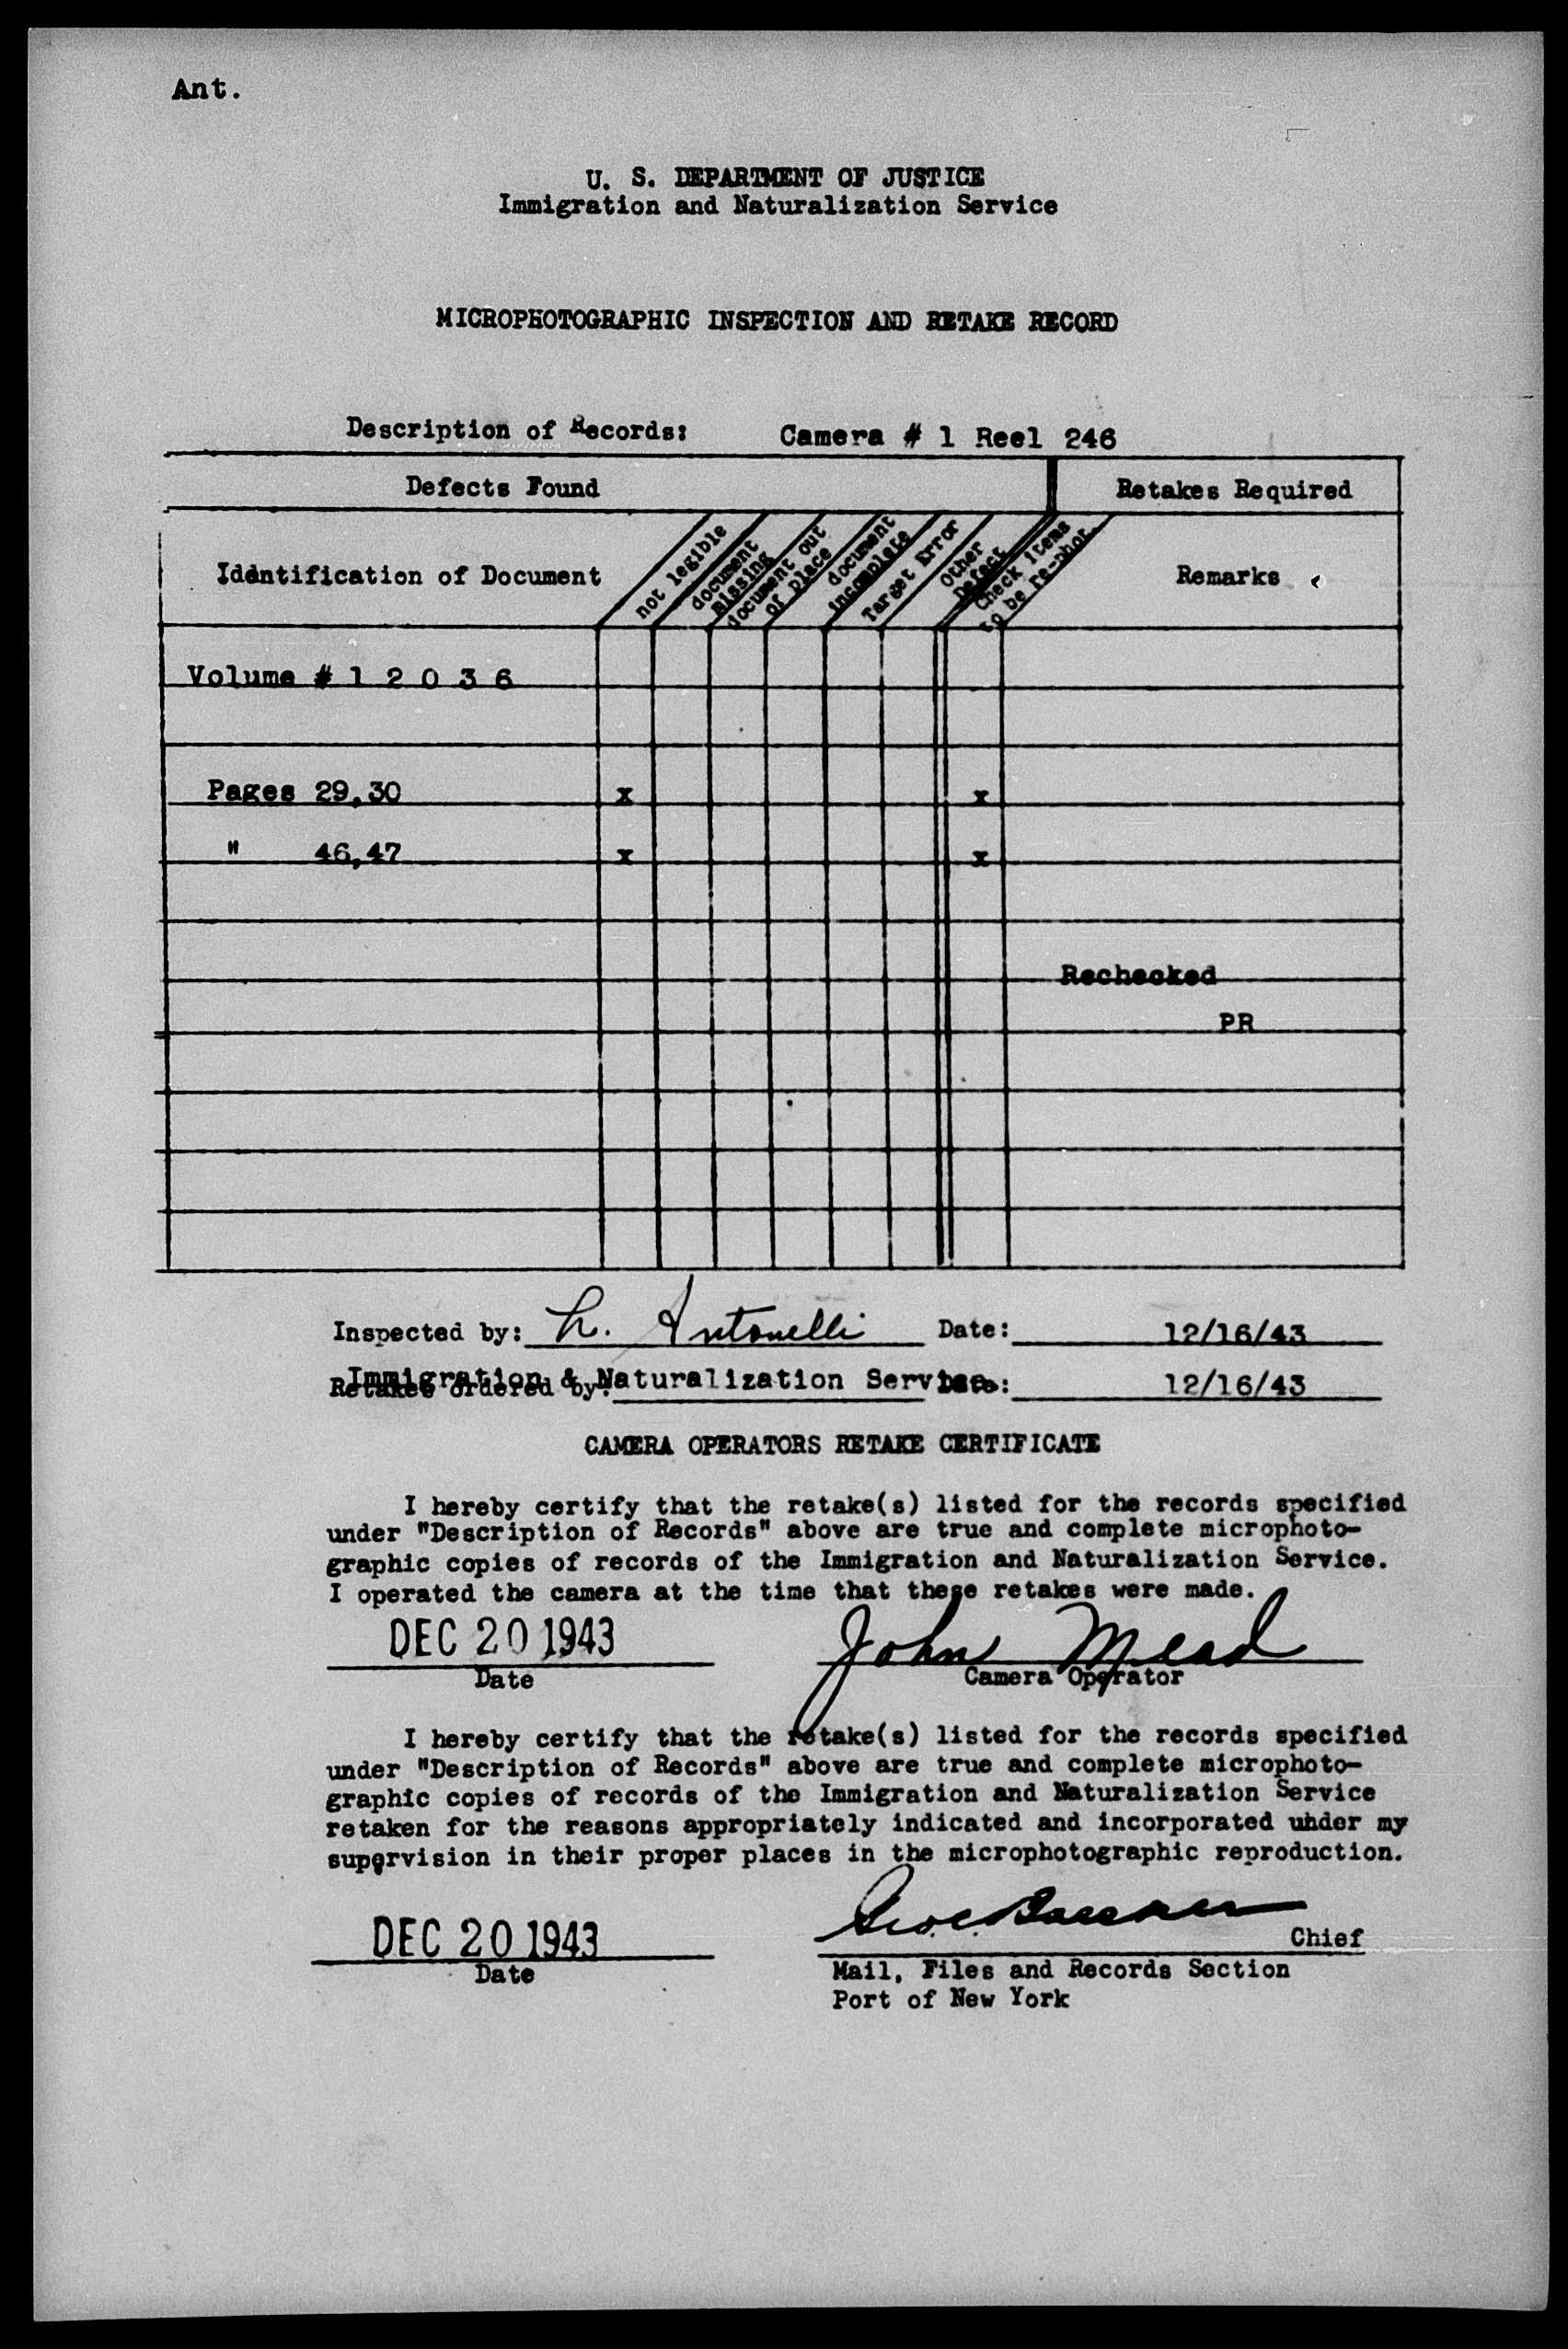 Ant.
U. S. DEPARTMENT OF JUSTICE
Immigration and Naturalization Service
MICROPHOTOGRAPHIC INSPECTION AND RETAKE RECORD
Description of Records: Camera # 1 Reel 246
Defects Found Retakes Required
Identification of Document
not legible
document missing
document out of place
document incomplete
Target Error
Other Defect
Check items to be re-phot.
Remarks
Volume # 1 2 0 3 6
Pages 29,30 x x
" 46,47 x x
Rechecked
PR
Inspected by: L. Antonelli Date: 12/16/43
Retakes ordered by: Immigration & Naturalization Service Date: 12/16/43
CAMERA OPERATORS RETAKE CERTIFICATE
I hereby certify that the retake(s) listed for the records specified
under "Description of Records" above are true and complete microphoto-
graphic copies of records of the Immigration and Naturalization Service.
I operated the camera at the time that these retakes were made.
DEC 20 1943 John Mead
Date Camera Operator
I hereby certify that the retake(s) listed for the records specified
under "Description of Records" above are true and complete microphoto-
graphic copies of records of the Immigration and Naturalization Service
retaken for the reasons appropriately indicated and incorporated under my
supervision in their proper places in the microphotographic reproduction.
DEC 20 1943 Chief
Date Mail, Files and Records Section
Port of New York